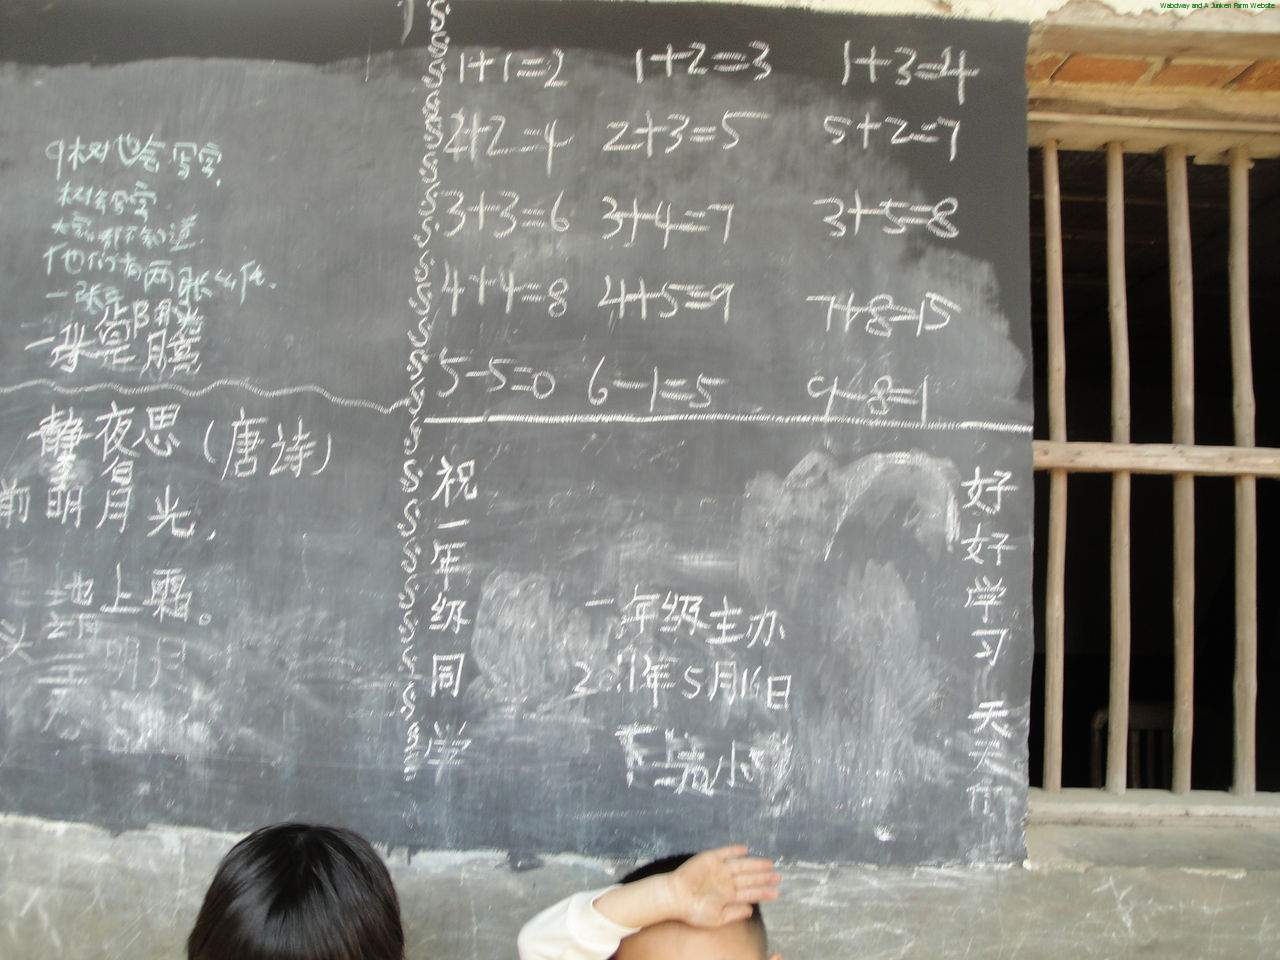 Wabdway and A Junken Farm Website
1+1=2 1+2=3 1+3=4
2+2=4 2+3=5 5+2=7
3+3=6 3+4=7 3+5=8
4+4=8 4+5=9 7+8=15
5-5=0 6-1=5 9-8=1
树也会写字
树会写字
大家都不知道
他们有两张纸
一张是阴
一张是月亮
静夜思(唐诗)
前明月光,
地上霜。
明月
祝一年级同学
一年级主办
2011年5月16日
好好学习 天天向